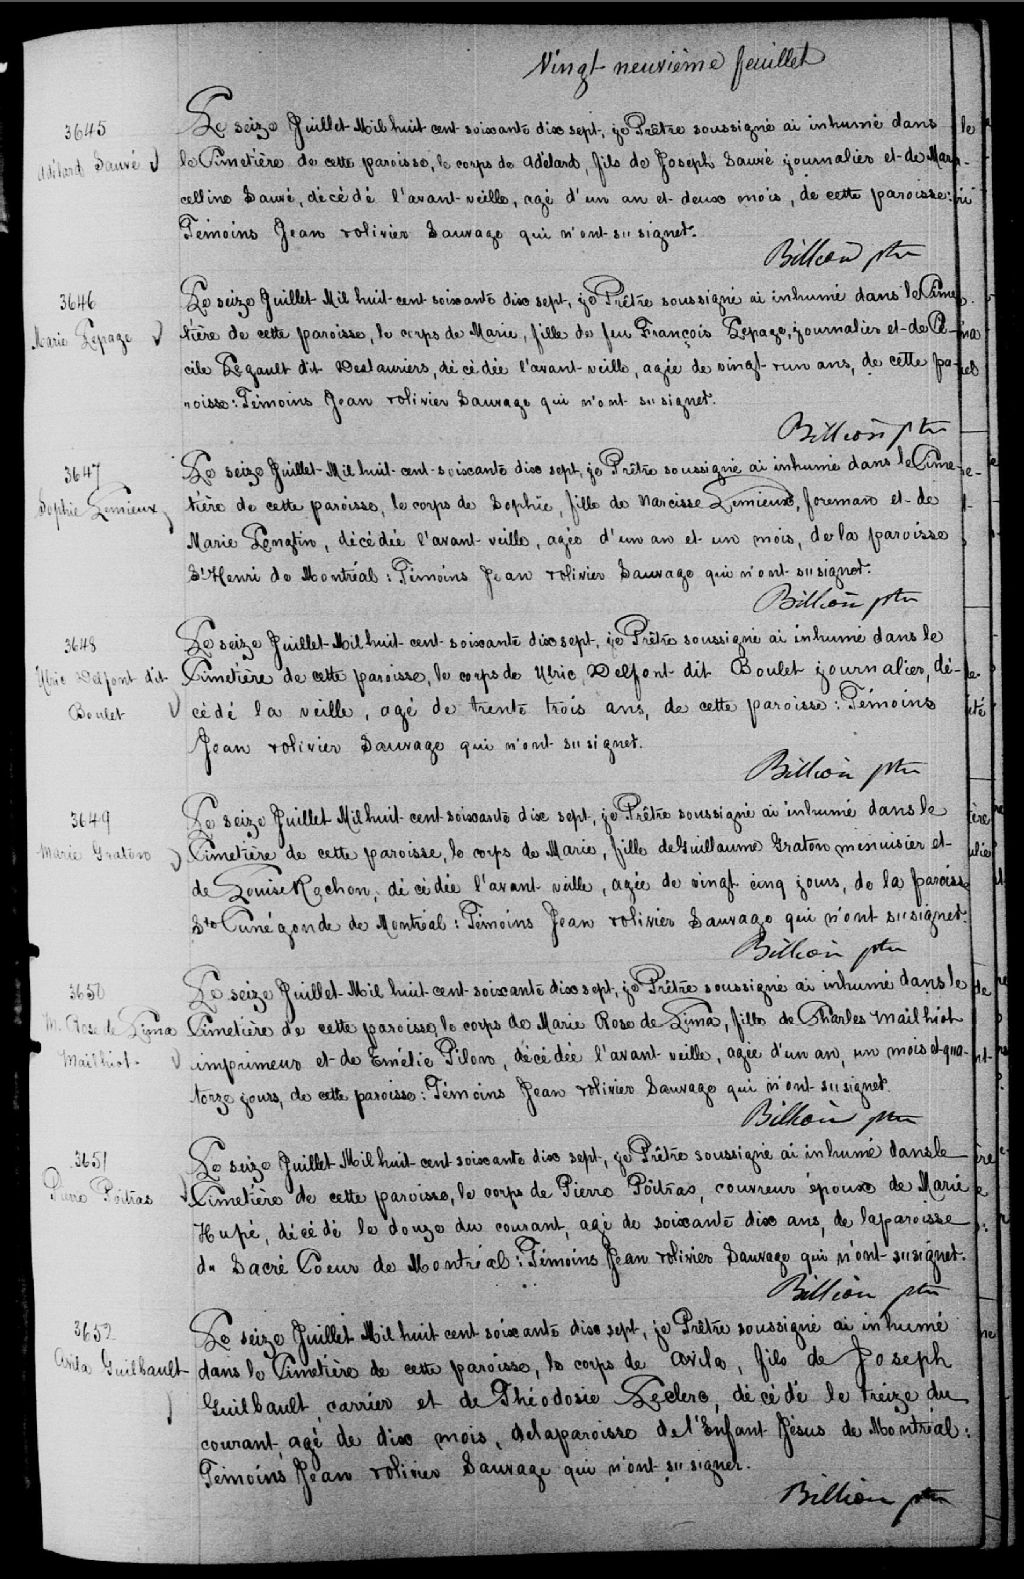 Vingt neuvième feuillet
3645
Adélard Sauvé
Le seize Juillet Mil huit cent soixante dix sept, je Prêtre soussigné ai inhumé dans
le Cimetière de cette paroisse, le corps de Adélard, fils de Joseph Sauvé journalier et de Mar-
celline Sauvé, décédé l'avant-veille, agé d'un an et deux mois, de cette paroisse:
Témoins Jean & Olivier Sauvage qui n'ont su signer.
Billion ptre
3646
Marie Lepage
Le seize Juillet Mil huit cent soixante dix sept, je Prêtre soussigné ai inhumé dans le Cime-
tière de cette paroisse, le corps de Marie, fille de feu François Lepage, journalier et de Cé-
cile Legault dit Deslauriers, décédée l'avant-veille, agée de vingt & un ans, de cette pa-
roisse: Témoins Jean & Olivier Sauvage qui n'ont su signer.
Billion ptre
3647
Sophie Lemieux
Le seize Juillet Mil huit cent soixante dix sept, je Prêtre soussigné ai inhumé dans le Cime-
tière de cette paroisse, le corps de Sophie, fille de Narcisse Lemieux, foreman et de
Marie Lengtin, décédée l'avant-veille, agée d'un an et un mois, de la paroisse
St Henri de Montréal: Témoins Jean & Olivier Sauvage qui n'ont su signer.
Billion ptre
3648
Ulric Delfont dit
Boulet
Le seize Juillet Mil huit cent soixante dix sept, je Prêtre soussigné ai inhumé dans le
Cimetière de cette paroisse, le corps de Ulric Delfont dit Boulet journalier, dé-
cédé la veille, agé de trente trois ans, de cette paroisse: Témoins
Jean & Olivier Sauvage qui n'ont su signer.
Billion ptre
3649
Marie Graton
Le seize Juillet Mil huit cent soixante dix sept, je Prêtre soussigné ai inhumé dans le
Cimetière de cette paroisse, le corps de Marie, fille de Guillaume Graton menuisier et
de Louise Rochon, décédée l'avant veille, agée de vingt cinq jours, de la paroisse
Ste Cunégonde de Montréal: Témoins Jean & Olivier Sauvage qui n'ont su signer.
Billion ptre
3650
M. Rose de Lima
Mailhiot.
Le seize Juillet Mil huit cent soixante dix sept, je Prêtre soussigné ai inhumé dans le
Cimetière de cette paroisse, le corps de Marie Rose de Lima, fille de Charles Mailhiot
imprimeur et de Emélie Pilon, décédée l'avant veille, agée d'un an, un mois et qua-
torze jours, de cette paroisse: Témoins Jean & Olivier Sauvage qui n'ont su signer.
Billion ptre
3651
Pierre Poitras
Le seize Juillet Mil huit cent soixante dix sept, je Prêtre soussigné ai inhumé dans le
Cimetière de cette paroisse, le corps de Pierre Poitras, couvreur époux de Marie
Hupé, décédé le douze du courant, agé de soixante dix ans, de la paroisse
du Sacré Coeur de Montréal: Témoins Jean & Olivier Sauvage qui n'ont su signer.
Billion ptre
3652
Avila Guilbault
Le seize Juillet Mil huit cent soixante dix sept, je Prêtre soussigné ai inhumé
dans le Cimetière de cette paroisse, le corps de Avila, fils de Joseph
Guilbault, carrier et de Théodosie Leclerc, décédé le treize du
courant, agé de dix mois, de la paroisse de l'Enfant Jésus de Montréal:
Témoins Jean & Olivier Sauvage qui n'ont su signer.
Billion ptre